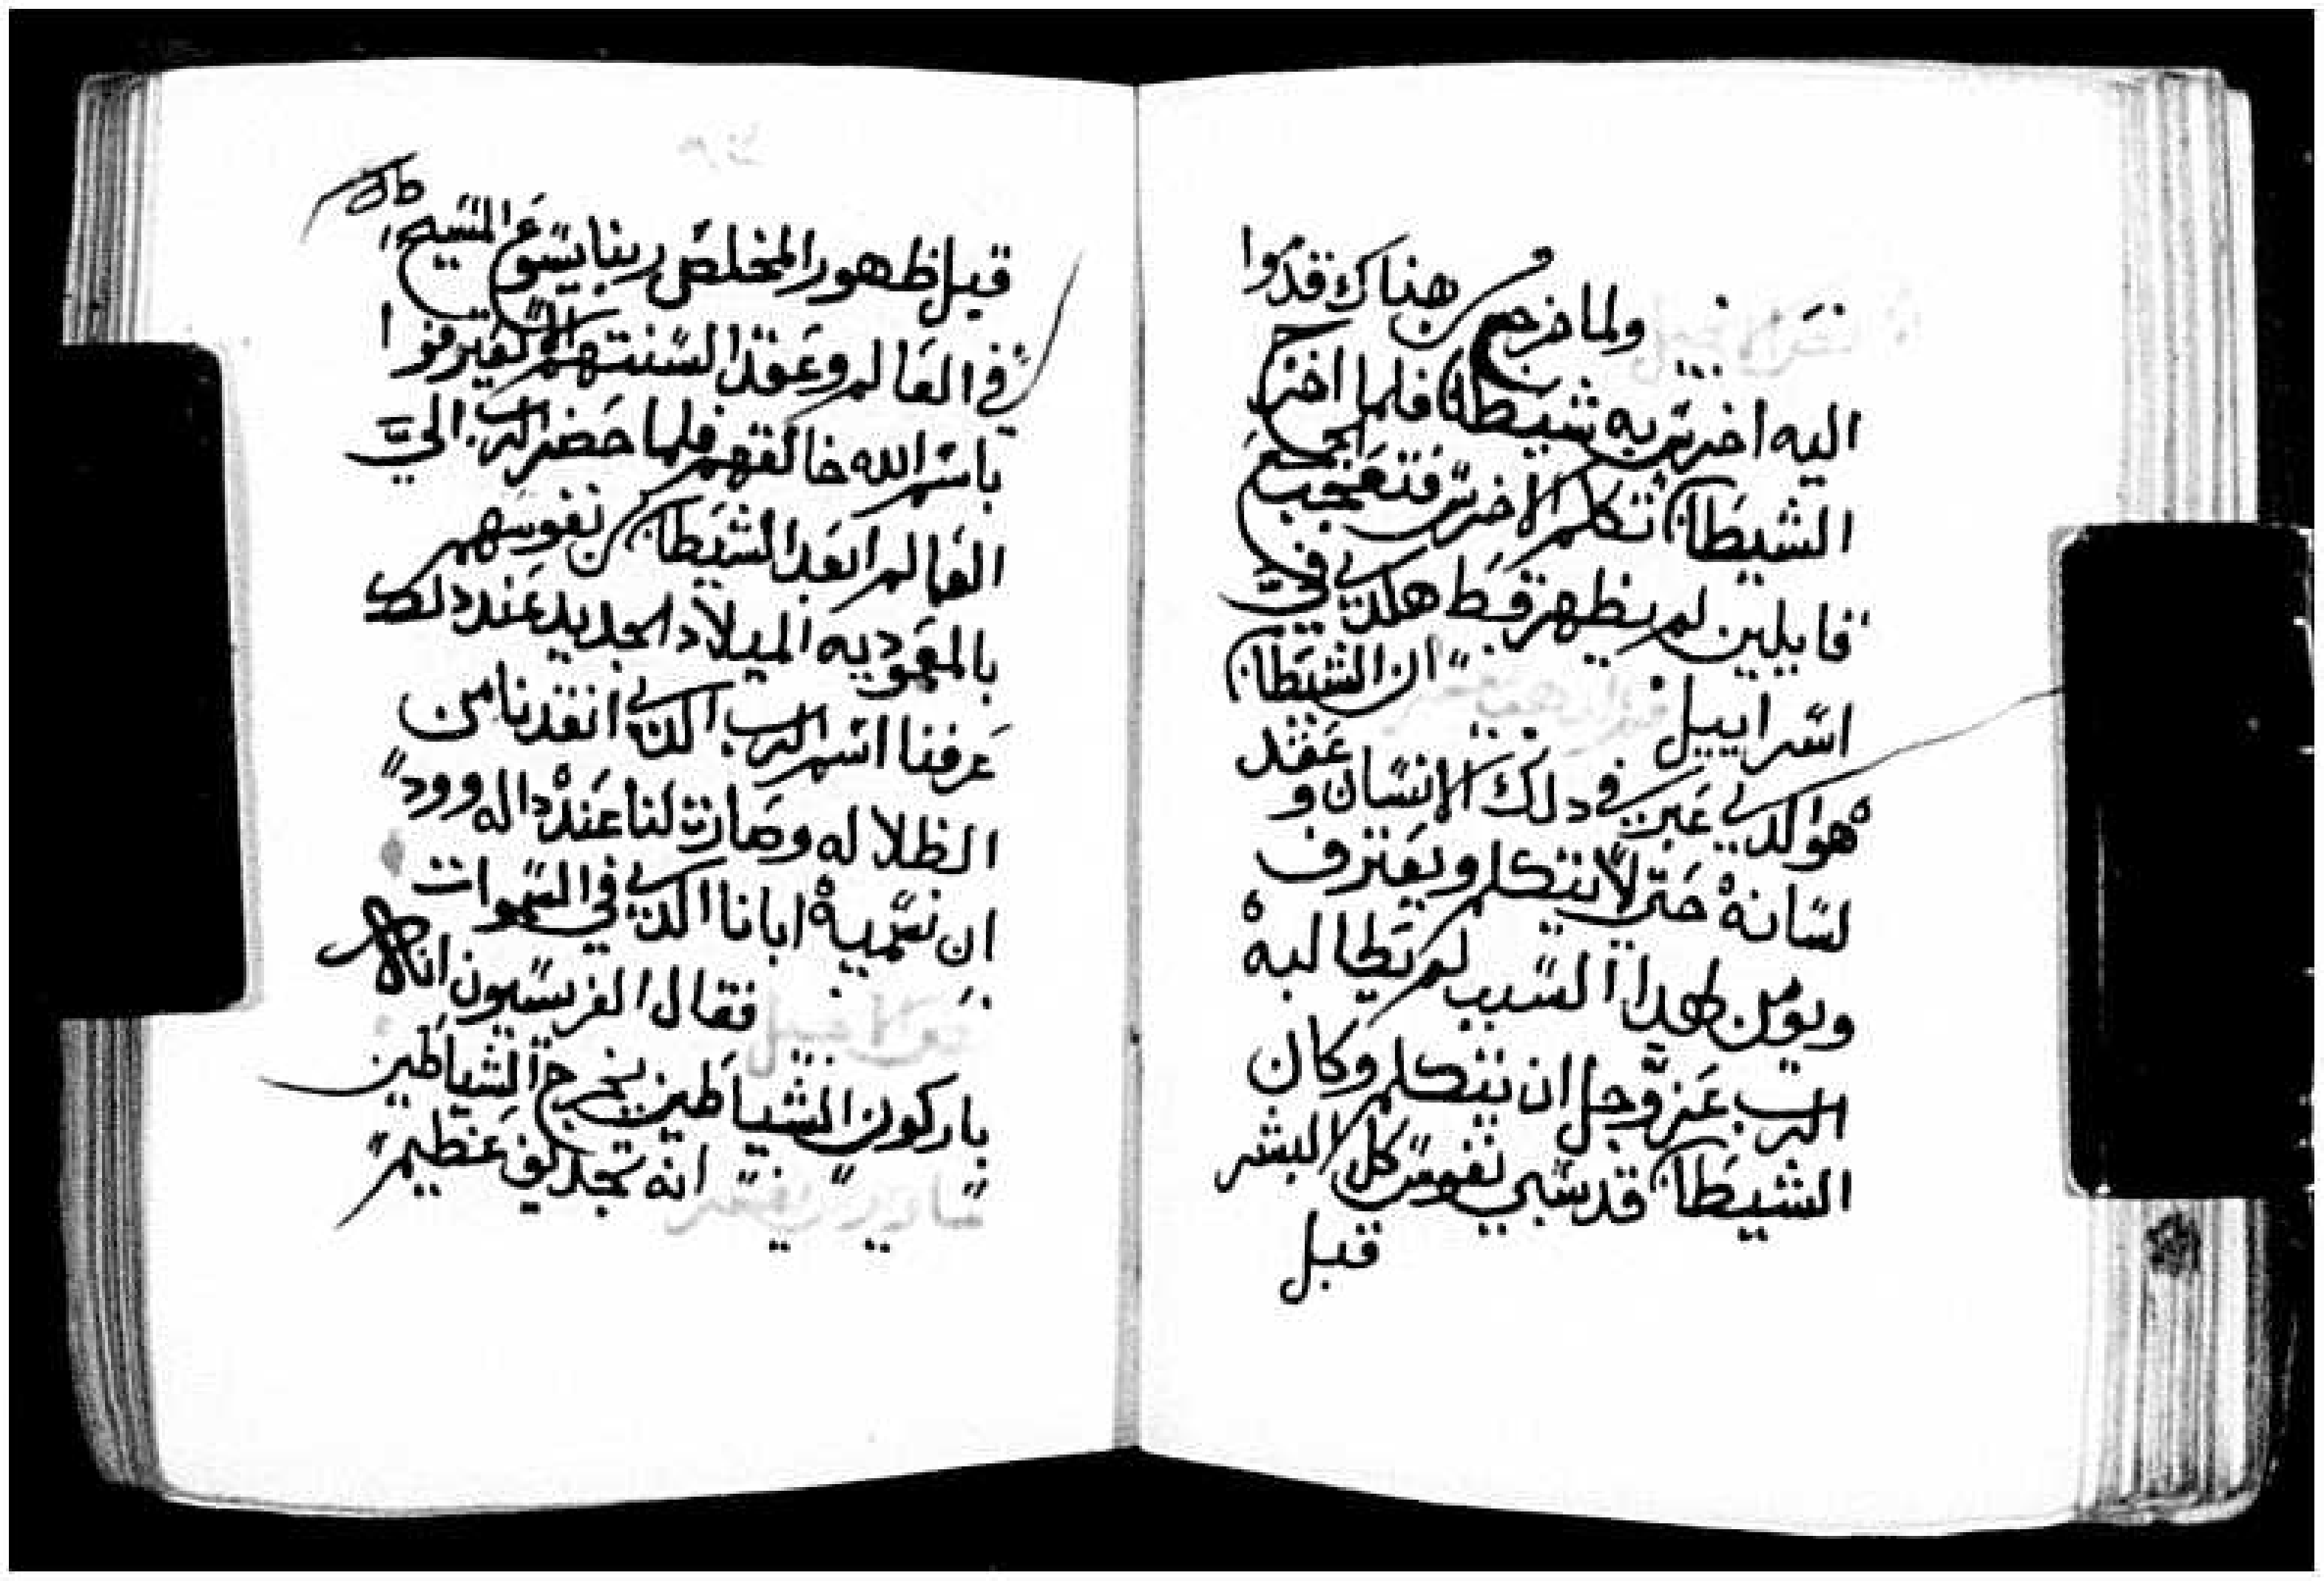 ولما خرج من هناك قدموا
اليه اخرس به شيطان فلما اخرج
الشيطان تكلم الاخرس فتعجب الجمع
قايلين لم يظهر قط هكدي في
اسراييل ان الشيطان
هو الدي عبر في دلك الانسان و عقد
لسانه حتي لا يتكلم ويعترف
ويومن لهدا السبب لم يطالبه
الرب عز وجل ان يتكلم وكان
الشيطان قد سبي نفوس كل البشر
قبل
قبل ظهور المخلص ربنا يسوع المسيح
في العالم وعقد السنتهم
باسم الله خالقهم فلما حضر الرب الي
العالم ابعد الشيطان من نفوسهم
بالمعموديه الميلاد الجديد عند دلك
عرفنا اسم الرب الدي انقدنا من
الظلاله وصارت لنا عنده داله وود
ان نسميه ابانا الدي في السموات
فقال الفريسيون
باركون الشياطين يخرج الشياطين
انه تجديف عظيم